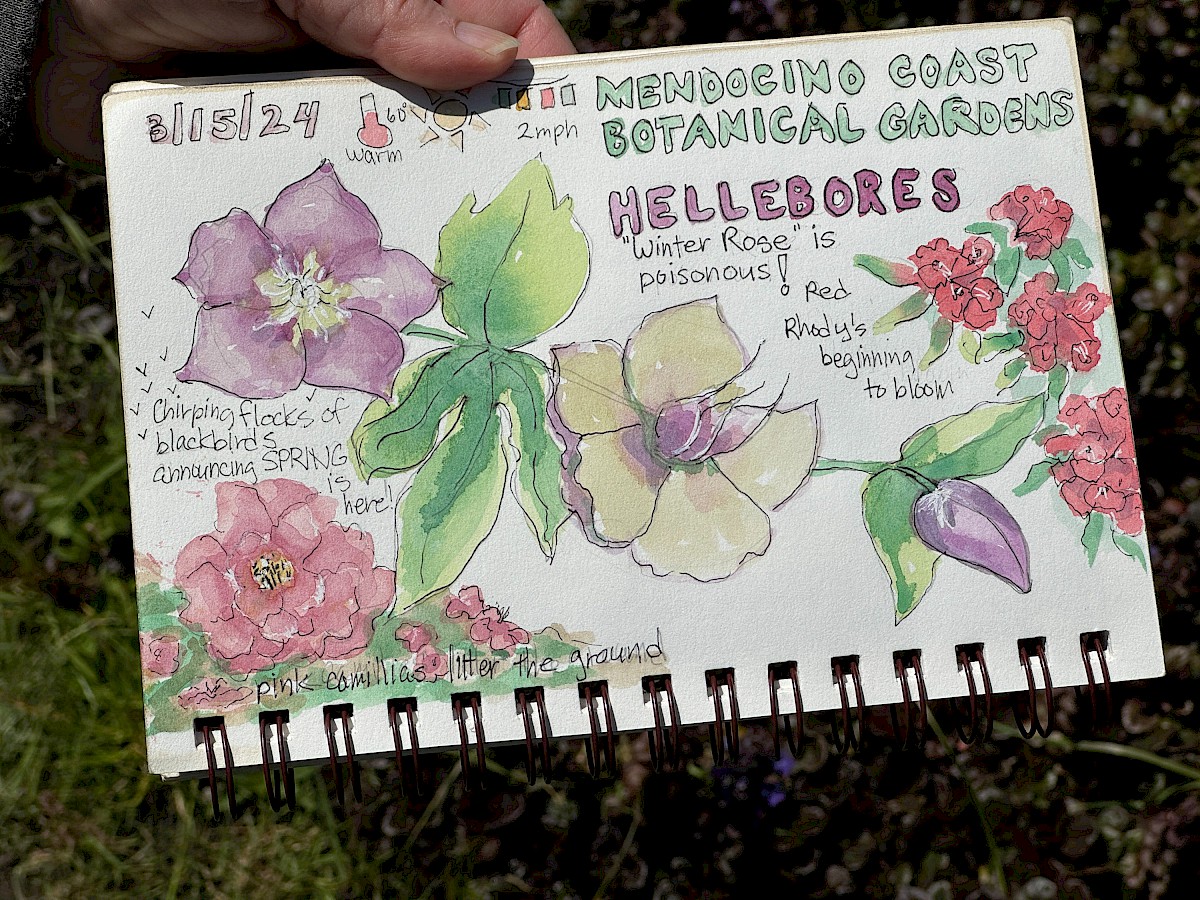 3/15/24
60°
warm
2mph
MENDOCINO COAST
BOTANICAL GARDENS
HELLEBORES
"Winter Rose" is
poisonous!
Red
Rhody's
beginning
to bloom
Chirping flocks of
blackbirds
announcing SPRING
is
here!
pink camillias litter the ground